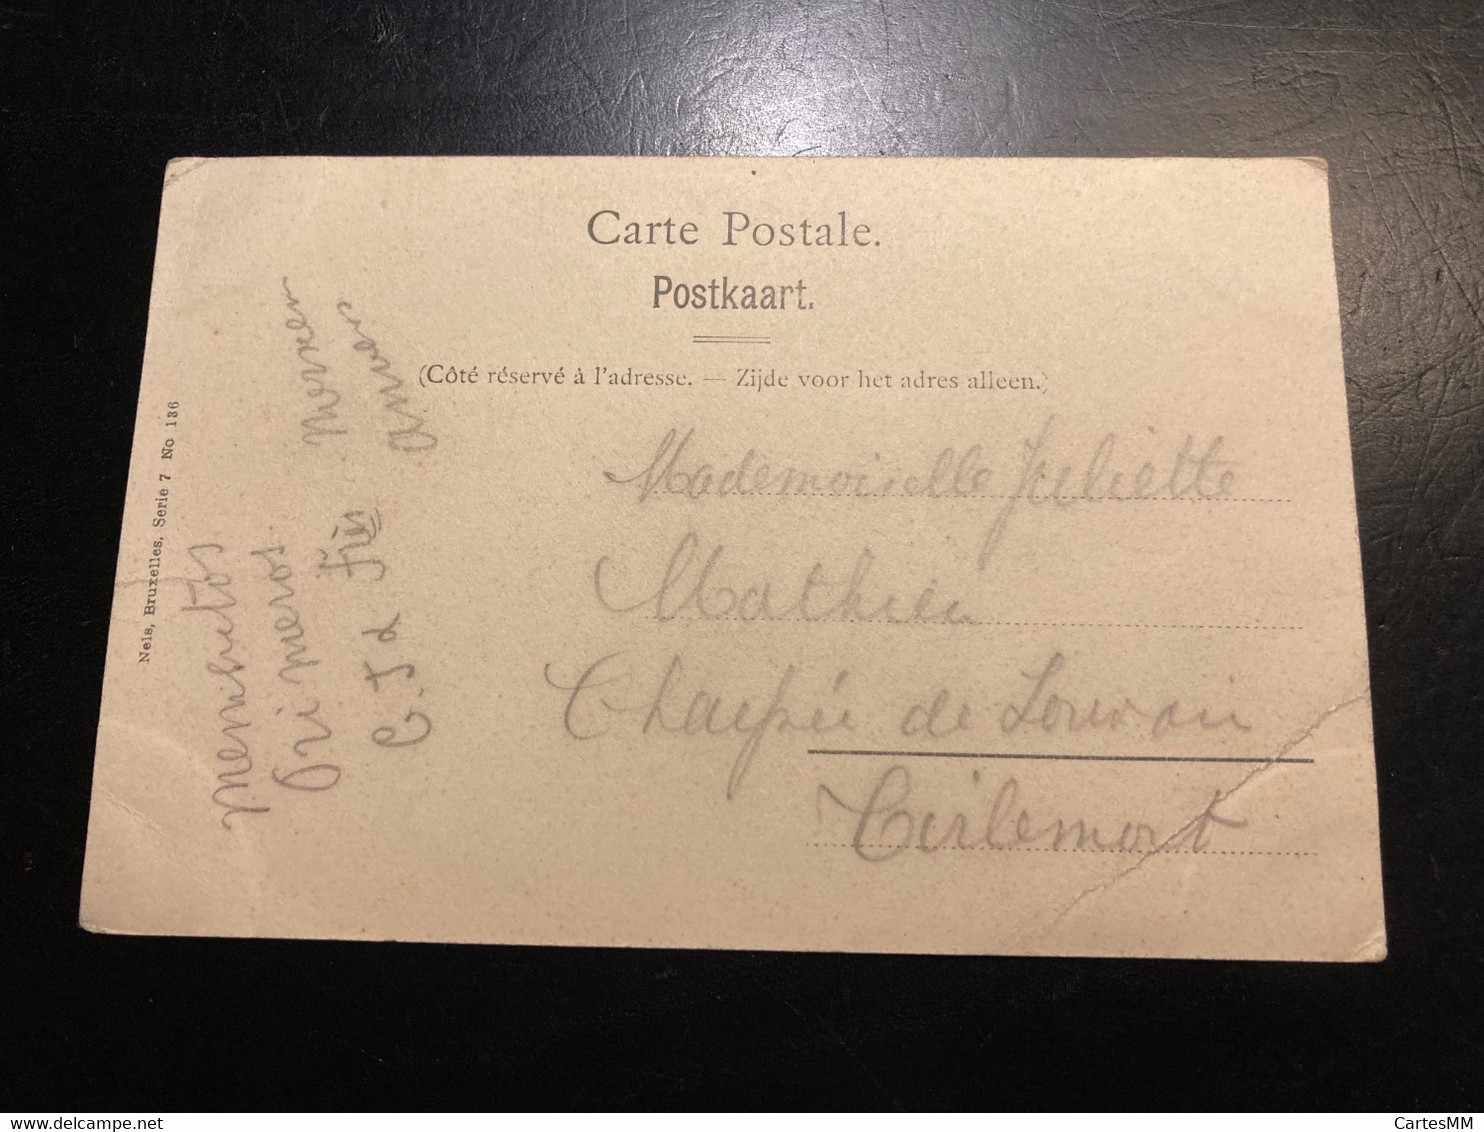 Carte Postale.
Postkaart.
(Côté réservé à l'adresse. — Zijde voor het adres alleen.)
Mademoiselle Juliette
Mathieu
Chaussée de Louvain
Tirlemont
Nels, Bruxelles, Serie 7 No 136
Primeros
Merxem
Anvers
CartesMM